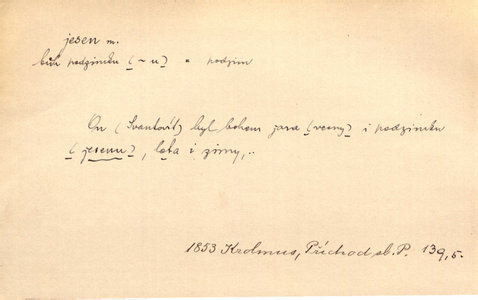 jesen m.
bůh podzimku (~u) = podzim
On (Svantovít) byl bohem jara (vesny) i podzimku
(jesenu), léta i zimy,..
1853 Krolmus, Příchod sl. P. 139,5.